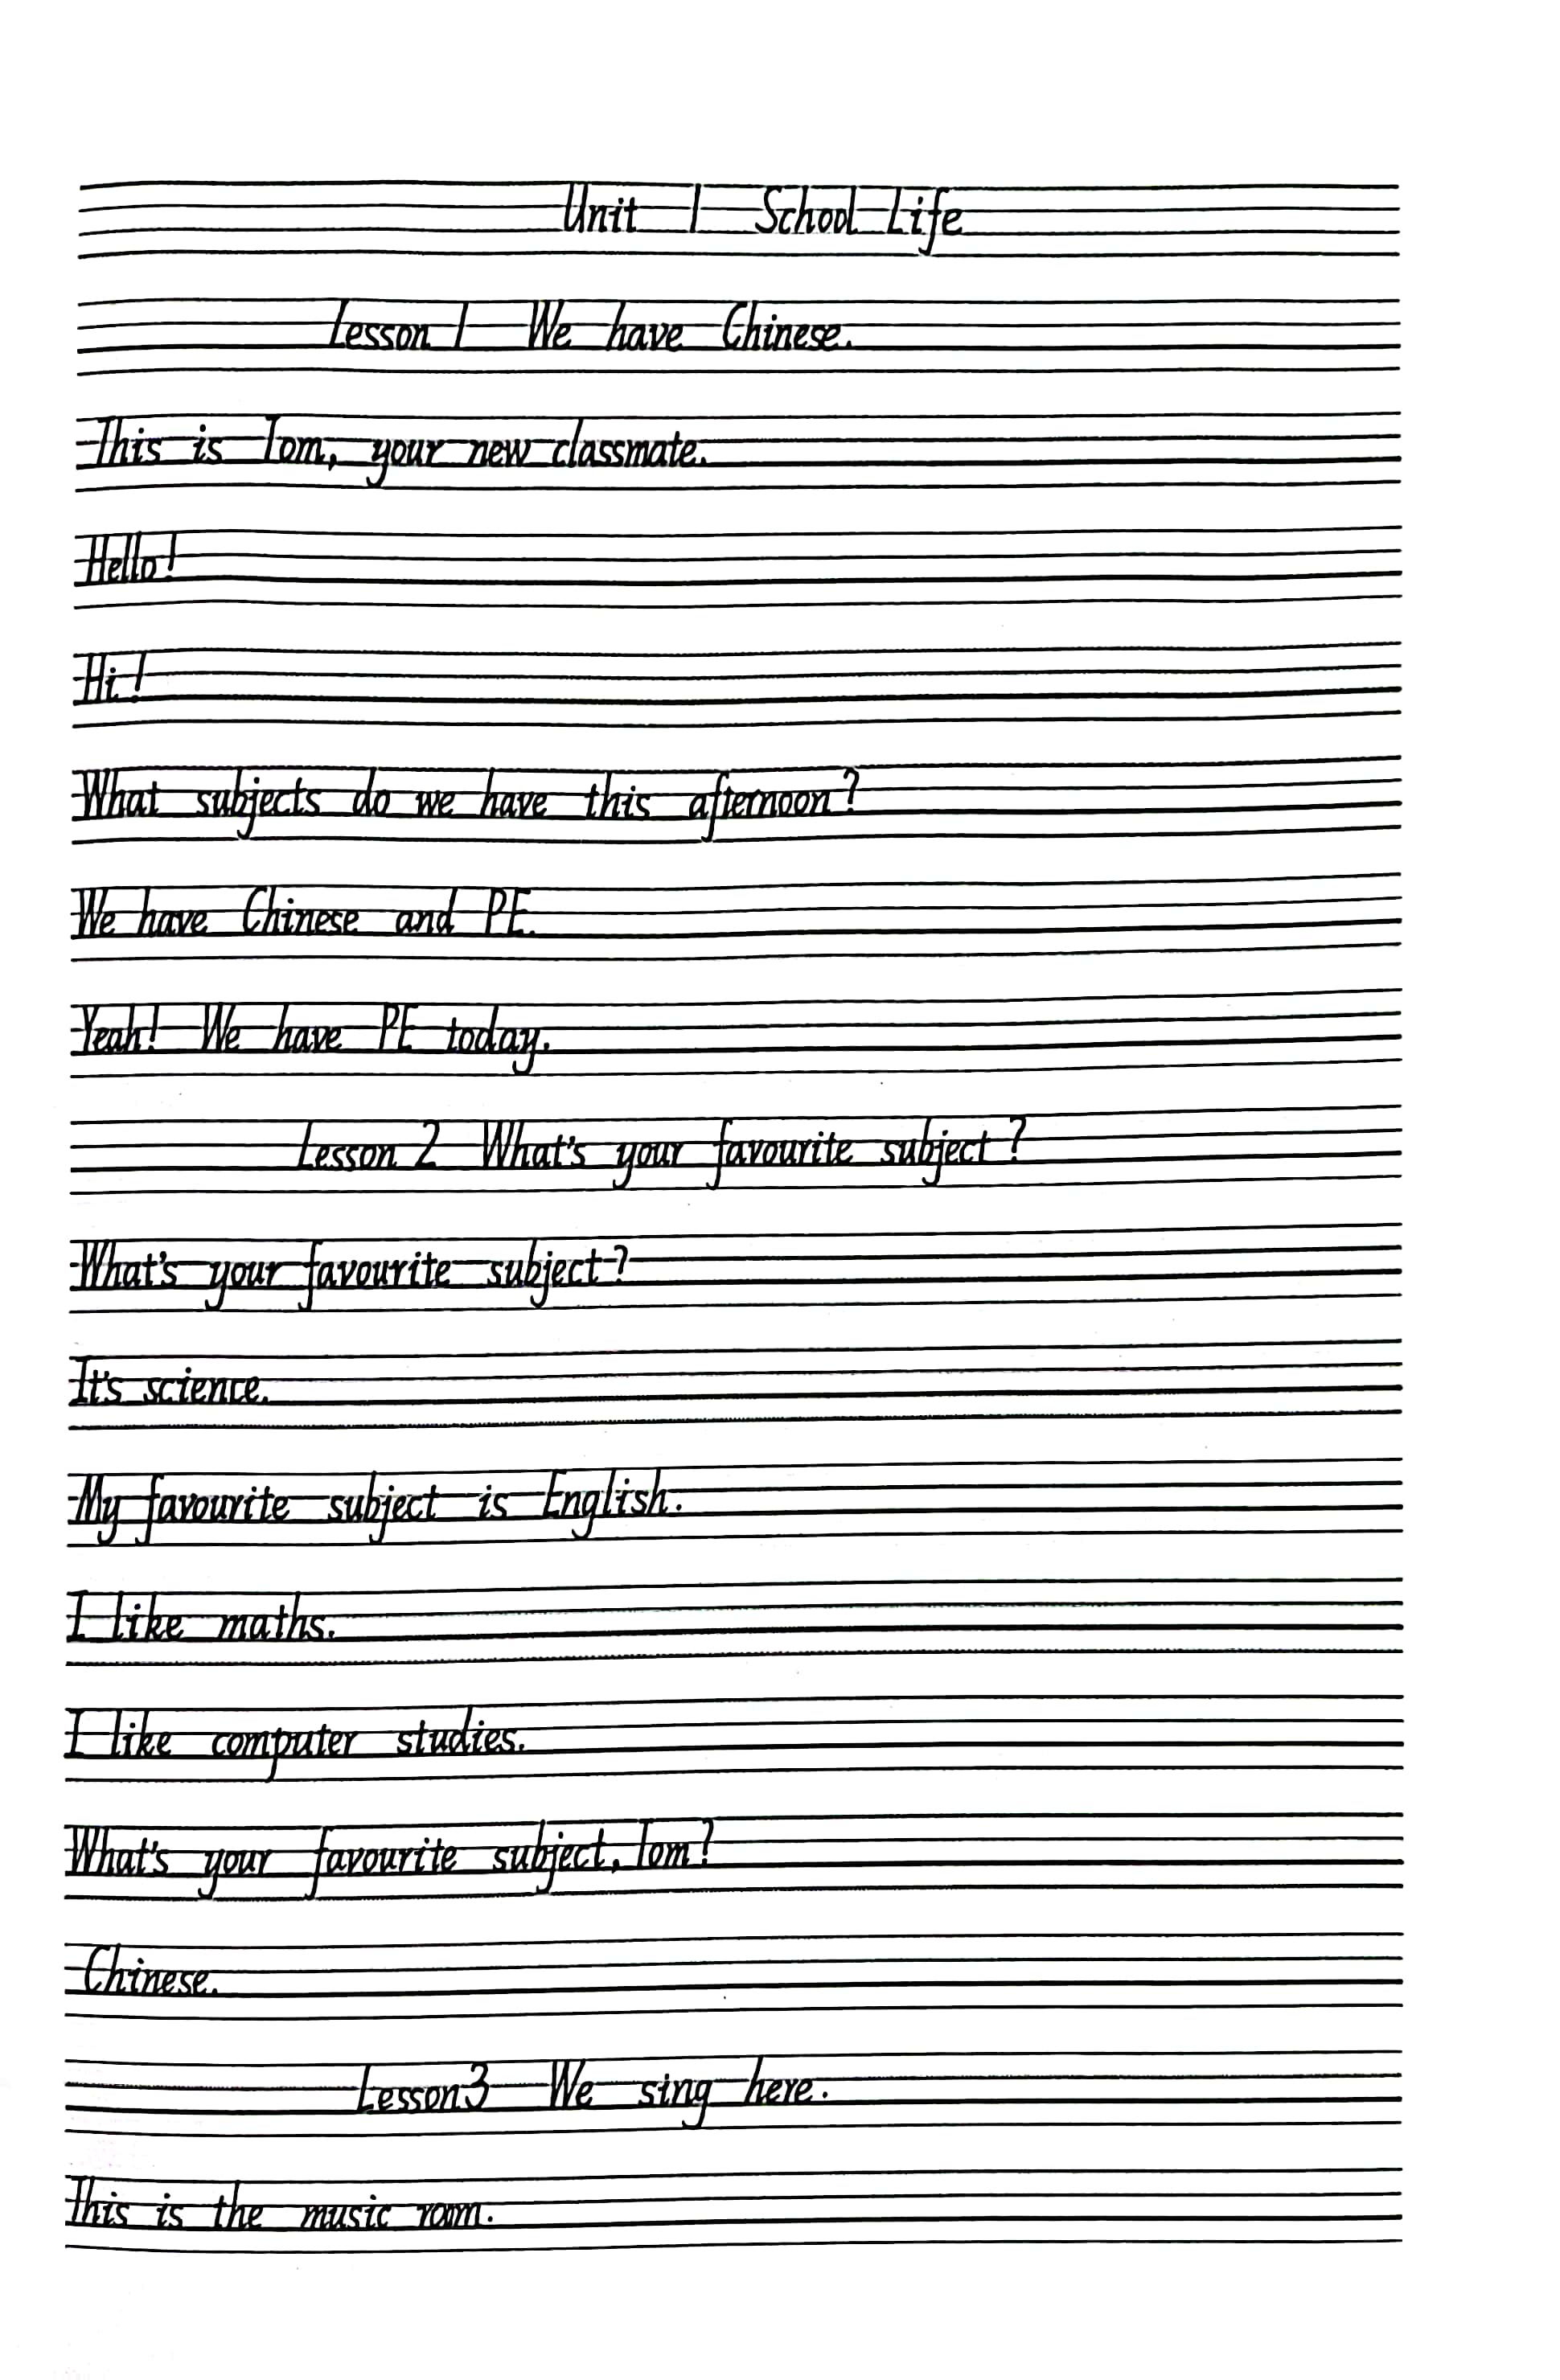 Unit 1 School Life
Lesson 1 We have Chinese.
This is Tom, your new classmate.
Hello!
Hi!
What subjects do we have this afternoon?
We have Chinese and PE.
Yeah! We have PE today.
Lesson 2 What's your favourite subject?
What's your favourite subject?
It's science.
My favourite subject is English.
I like maths.
I like computer studies.
What's your favourite subject, Tom?
Chinese.
Lesson 3 We sing here.
This is the music room.